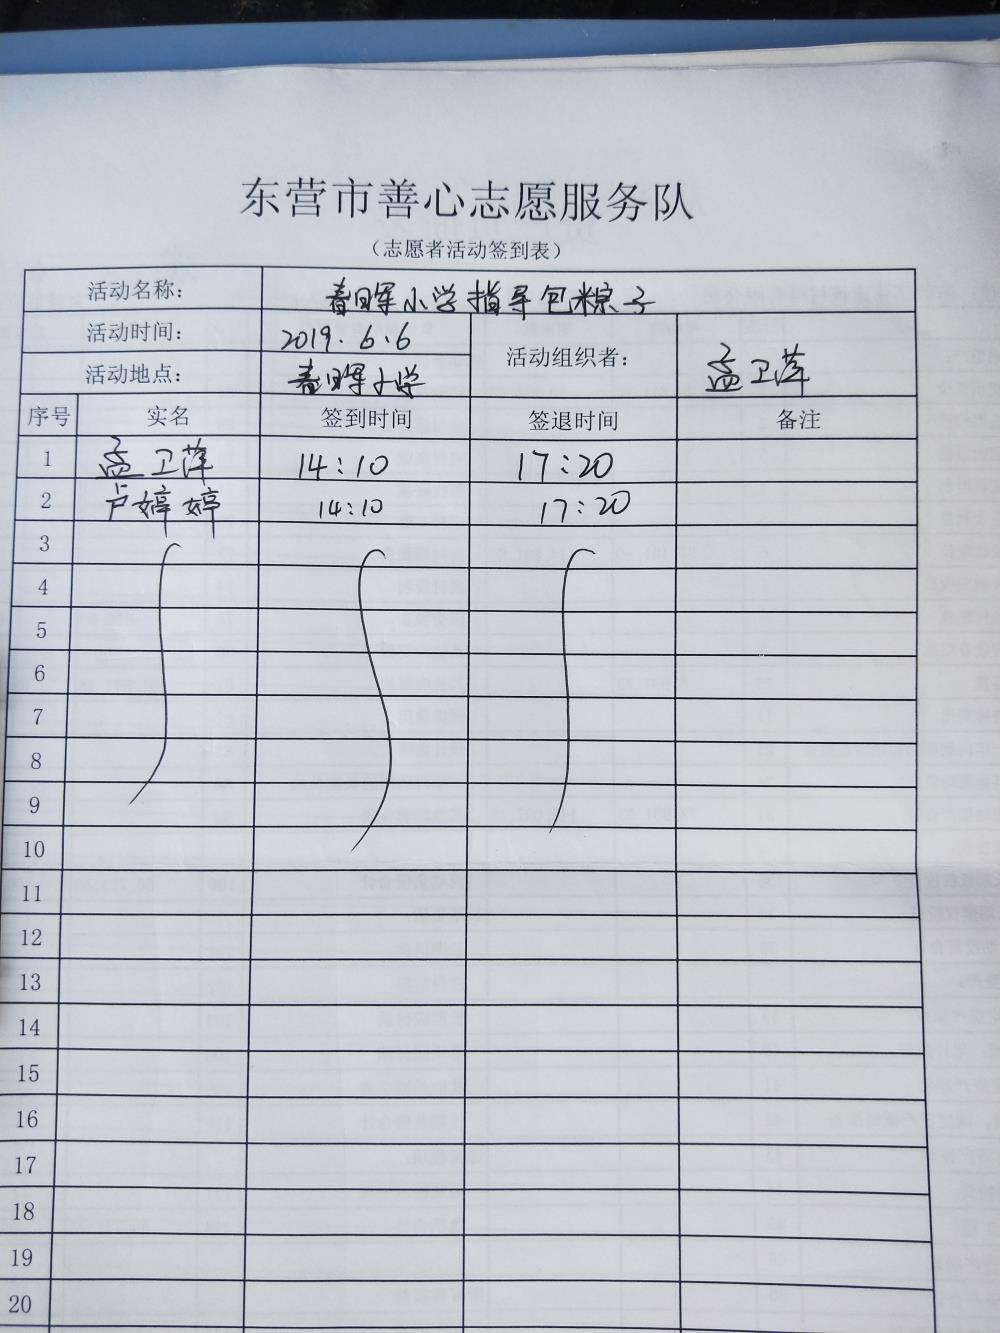 东营市善心志愿服务队
（志愿者活动签到表）
活动名称： 春晖小学指导包粽子
活动时间： 2019.6.6 活动组织者： 孟卫萍
活动地点： 春晖小学
序号 实名 签到时间 签退时间 备注
1 孟卫萍 14:10 17:20
2 卢婷婷 14:10 17:20
3
4
5
6
7
8
9
10
11
12
13
14
15
16
17
18
19
20